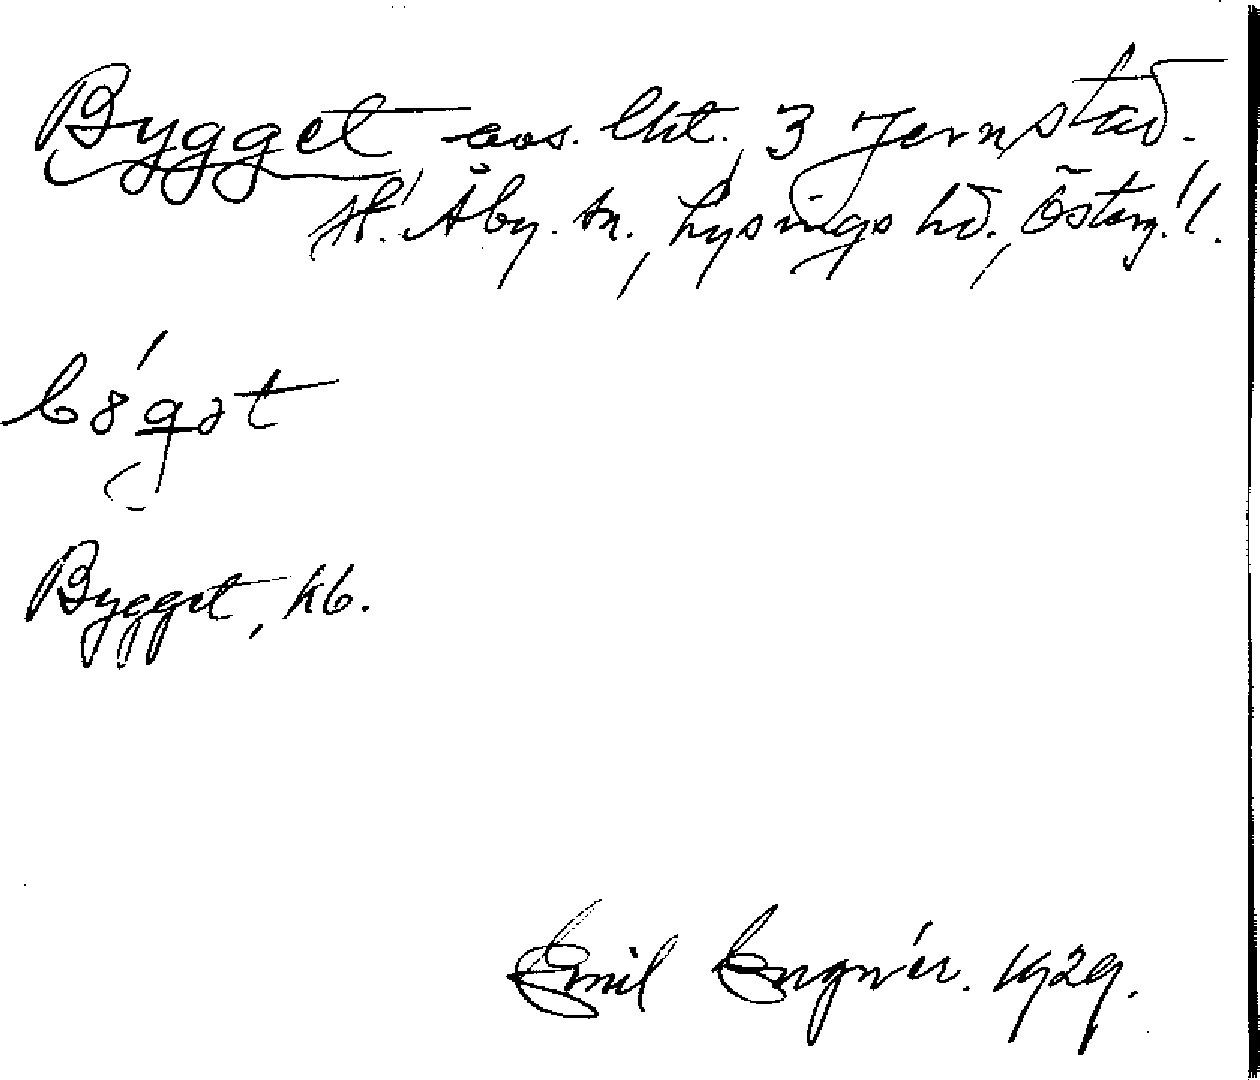 Bygget avs. lht. 3 Jernstad.
H. Åby. sn., Lysings hd., Österg. l.
Bygget, kb.
Emil Engnér. 1929.